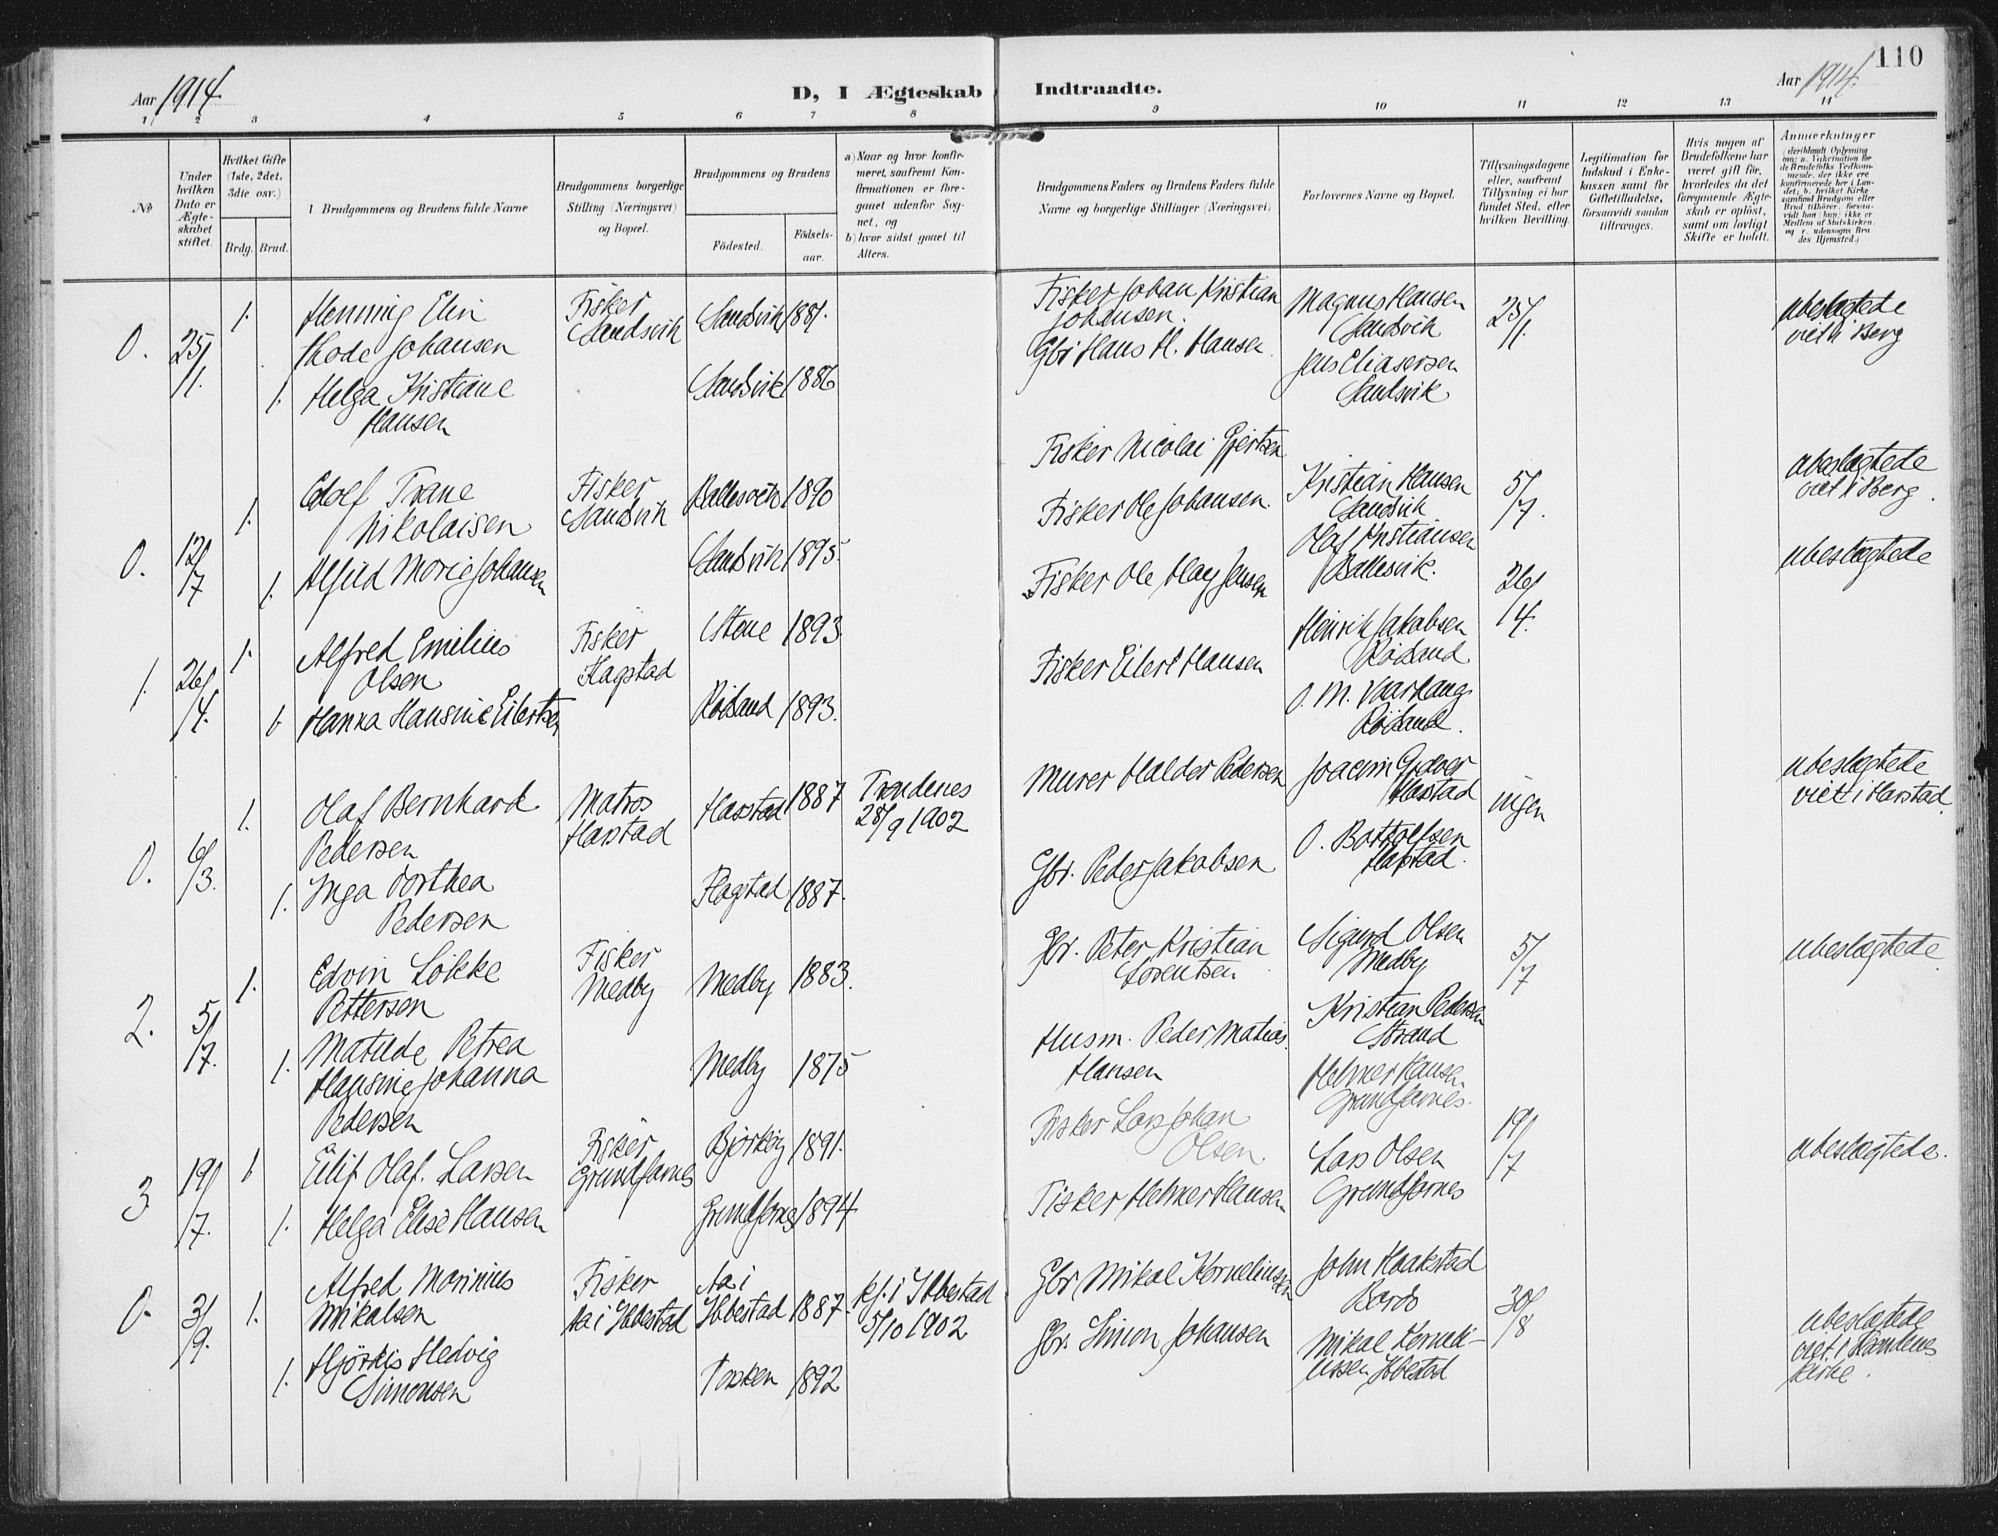 110
Aar 1914
D, I Ægteskab Indtraadte.
Aar 1914.
1 2 3 4 5 6 7 8 9 10 11 12 13 14
No
Under hvilken Dato er Ægteskabet stiftet.
Hvilket Gifte (1ste, 2det, 3die osv.)
Brdg. Brud.
Brudgommens og Brudens fulde Navne
Brudgommens borgerlige Stilling (Næringsvei) og Bopæl.
Brudgommens og Brudens
Födested.
Födselsaar.
a) Naar og hvor konfirmeret, saafremt Konfirmationen er foregaaet udenfor Sognet, og
b) hvor sidst gaaet til Alters.
Brudgommens Faders og Brudens Faders fulde Navne og borgerlige Stillinger (Næringsvei)
Forlovernes Navne og Bopæl.
Tillysningsdagene eller, saafremt Tillysning ei har fundet Sted, efter hvilken Bevilling.
Legitimation for Indskud i Enkekassen samt for Giftetilladelse, forsaavidt saadan tiltrænges.
Hvis nogen af Brudefolkene har været gift før, hvorledes da det foregaaende Ægteskab er opløst, samt om lovligt Skifte er holdt.
Anmerkninger
0. 25/1. 1.
Henning Elin
Thode Johansen
Fisker
Sandsvik
Sandsvik 1881.
Fisker Johan Kristian
Johansen.
Magnus Hansen
Sandsvik
25/1.
ubeslægtede
viet i Berg
1. Helga Kristiane
Hansen
Sandsvik 1886
Gbr Hans H. Hansen
Jens Eliasersen
Sandsvik
0. 12/7 1.
Edolf Trane
Nikolaisen
Fisker
Sandsvik
Ballesvik 1890
Fisker Nicolai Gjertsen
Kristian Hansen
Sandsvik
5/7.
ubeslægtede
viet i Berg.
1. Alfild Marie Johansen
Sandsvik 1895.
Fisker Ole Johansen.
Olaf Kristiansen
Ballesvik.
1. 26/4. 1.
Alfred Emilius
Olsen
Fisker
Flagstad
Stone 1893.
Fisker Ole Hay Jensen
Henrik Jakobsen
Rödsand
26/4.
ubeslægtede
1. Hanna Hansine Eilertsen
Rödsand 1893.
Fisker Eilert Hansen
O. M. Vaarhaug
Rödsand.
0. 6/3. 1.
Olaf Bernhard
Pedersen
Matros
Harstad
Harstad 1887
Trondenes
28/9 1902
Murer Haldor Pedersen
Joacim
Harstad
ingen
ubeslægtede
viet i Harstad.
1. Inga Dorthea
Pedersen
Flagstad 1887.
Gbr. Peder Jakobsen
O. Bottolfsen
Harstad.
2. 5/7. 1.
Edvin Lökke
Pettersen
Fisker
Medby
Medby 1883.
Gbr. Peter Kristian
Lorentsen
Sigurd Olsen
Medby
5/7
ubeslægtede
1. Matilde Petrea
Hansine Johanna
Pedersen
Medby 1875
Husm. Peder Matias
Hansen
Kristian Pedersen
Strand
3 19/7. 1
Eilif Olaf. Larsen
Fisker
Grundfarnes
Bjorköy 1891.
Fisker Lars Johan
Olsen
Helmer Hansen
Grundfarnes.
19/7
ubeslægtede.
1. Helga Elise Hansen
Grundfarnes 1894
Fisker Helmer Hansen
Lars Olsen
Grundfarnes
0. 3/9. 1.
Alfred Marinius
Mikalsen
Fisker
Aa i Ibbestad
Aa i
Ibbestad 1887.
kf. i Ibbestad
5/10 1902
Gbr Mikal Kornelinssen
John Haakstad
Bards
30/8
ubeslægtede
viet i Trandenes
kirke.
1. Hjördis Hedvig
Simonsen
Torsken 1892
Gbr. Simon Johansen
Mikal Korneliussen Ibbestad